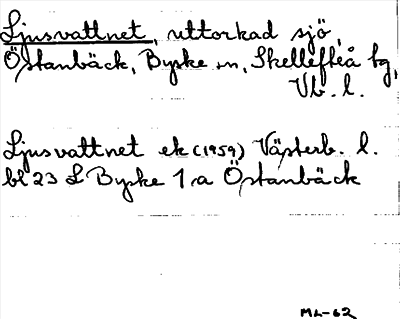 Ljusvattnet, uttorkad sjö,
Östanbäck, Byske sn, Skellefteå tg,
Vb. l.
Ljusvattnet ek (1959) Västerb. l.
bl 23 L Byske 1 a Östanbäck
ML-62